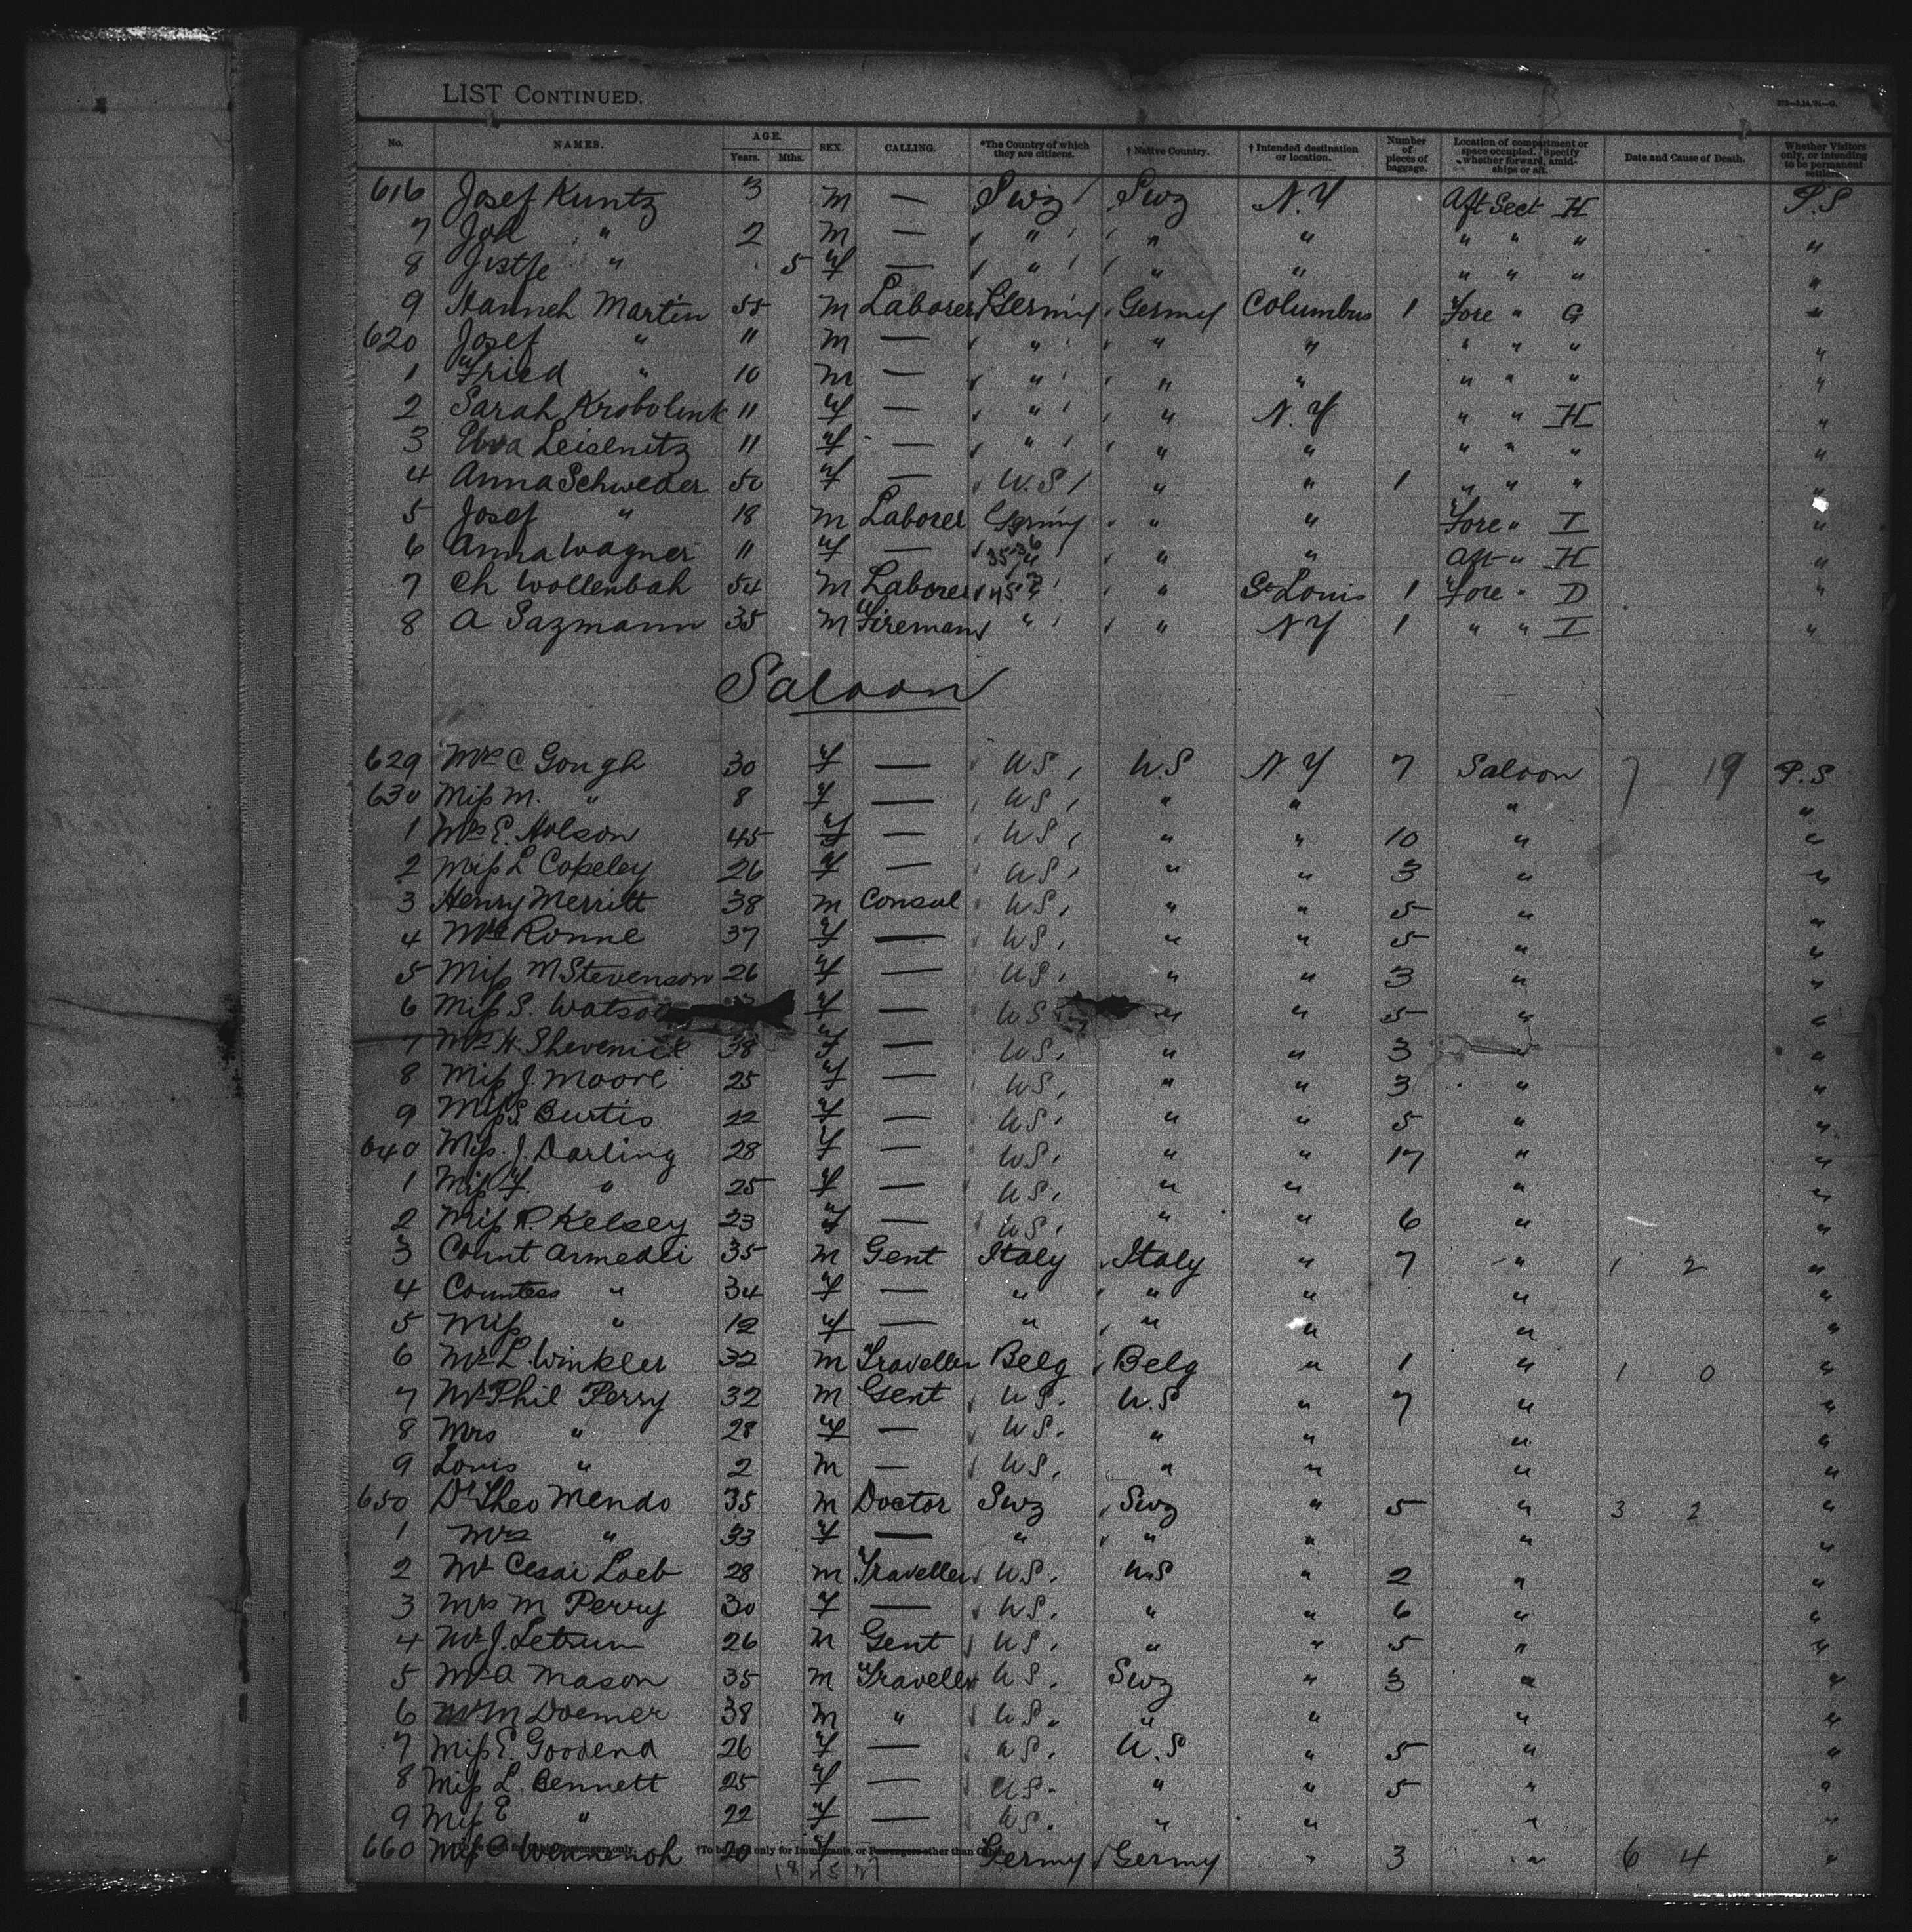 LIST CONTINUED.
No. NAMES. AGE. Years. Mths. SEX. CALLING. *The Country of which they are citizens. † Native Country. † Intended destination or location. Number of pieces of baggage. Location of compartment or space occupied. Specify whether forward, amidships or aft. Date and Cause of Death. Whether Visitors only, or intending to be permanent settlers.
616 Josef Kuntz 3 M — Swz Swz N.Y Aft Sect H P.S
7 Joh " 2 M — " " " " " " "
8 " 5 f — " " " " " " "
9 Hanneh Martin 55 M Laborer Germy Germy Columbus 1 Fore " G "
620 Josef " 11 M — " " " " " " "
1 Fried " 10 M — " " " " " " "
2 Sarah Krobolink 11 f — " " N.Y " " H "
3 Eva Leisenitz 11 f — " " " " " " "
4 Anna Schweder 50 f — U.S " " 1 " " " "
5 Josef " 18 M Laborer Germy " " Fore " I "
6 Anna Wagner 11 f — " " Aft " H "
7 Ch Wollenbah 54 M Laborer " St Louis 1 Fore " D "
8 A Sazmann 35 M Fireman " " NY 1 " " I "
Saloon
629 Mrs C Gough 30 f — US U.S N.Y 7 Saloon 7 19 P.S
630 Miss M. " 8 f — US " " " "
1 Mrs E. Holson 45 f — US " " 10 " "
2 Miss L Copeley 26 f — US " " 3 " "
3 Henry Merritt 38 M Consul US " " 5 " "
4 Mrs Ronne 37 f — US " " 5 " "
5 Miss M Stevenson 26 f — US " " 3 " "
6 Miss S. Watson f — US " " 5 " "
7 Mrs H. Shevenick 38 f — US " " 3 " "
8 Miss J. Moore 25 f — US " " 3 " "
9 Miss S. Curtis 22 f — US " " 5 " "
640 Miss J. Darling 28 f — US " " 17 " "
1 Miss F. " 25 f — US " " " "
2 Miss R Kelsey 23 f — US " " 6 " "
3 Count Armedli 35 M Gent Italy Italy " 7 " 1 2 "
4 Countess " 34 f — " " " " "
5 Miss " 12 f — " " " " "
6 Mr L. Winkler 32 M Traveller Belg Belg " 1 " 1 0 "
7 Mr Phil Perry 32 M Gent US U.S " 7 " "
8 Mrs " 28 f — US " " " "
9 Louis " 2 M — US " " " "
650 Dr Theo Mendo 35 M Doctor Swz Swz " 5 " 3 2 "
1 Mrs " 33 f — " " " " "
2 Mr Cesar Loeb 28 M Traveller US US " 2 " "
3 Mrs M Perry 30 f — US " " 6 " "
4 Mr J. Letrun 26 M Gent US " " 5 " "
5 Mr A Mason 35 M Traveller US Swz " 3 " "
6 Mr M Doemer 38 M " US " " " "
7 Miss E. Goodend 26 f — US U.S " 5 " "
8 Miss L. Bennett 25 f — US " " 5 " "
9 Miss E " 22 f — US " " " "
660 Miss C 20 f Germy Germy " 3 " 6 4 "